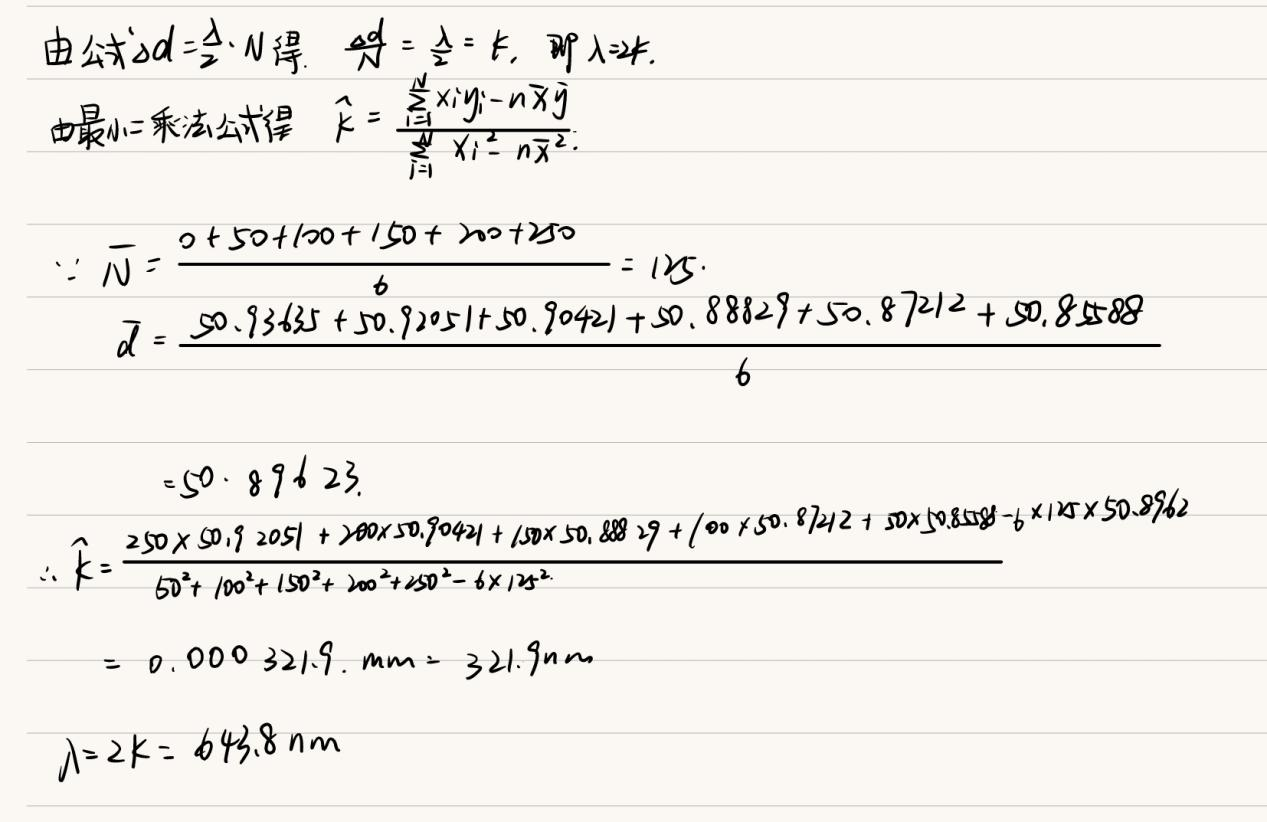 由公式Δd=λ/2·N得. Δd/N = λ/2 = k, 即 λ=2k.
由最小二乘法公式得 k̂ = (∑_{i=1}^{N} xiyi - n x̄ ȳ) / (∑_{i=1}^{N} xi² - n x̄²).
∵ N̄ = (0+50+100+150+200+250) / 6 = 125.
d̄ = (50.93635+50.92051+50.90421+50.88829+50.87212+50.85588) / 6
=50.89623.
∴ k̂ = (250×50.92051+200×50.90421+150×50.88829+100×50.87212+50×50.85588-6×125×50.8962) / (50²+100²+150²+200²+250²-6×125².)
= 0.000321.9. mm = 321.9nm
λ=2k= 643.8nm